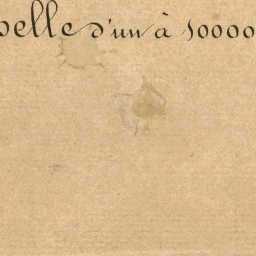 elle d'un à 10000